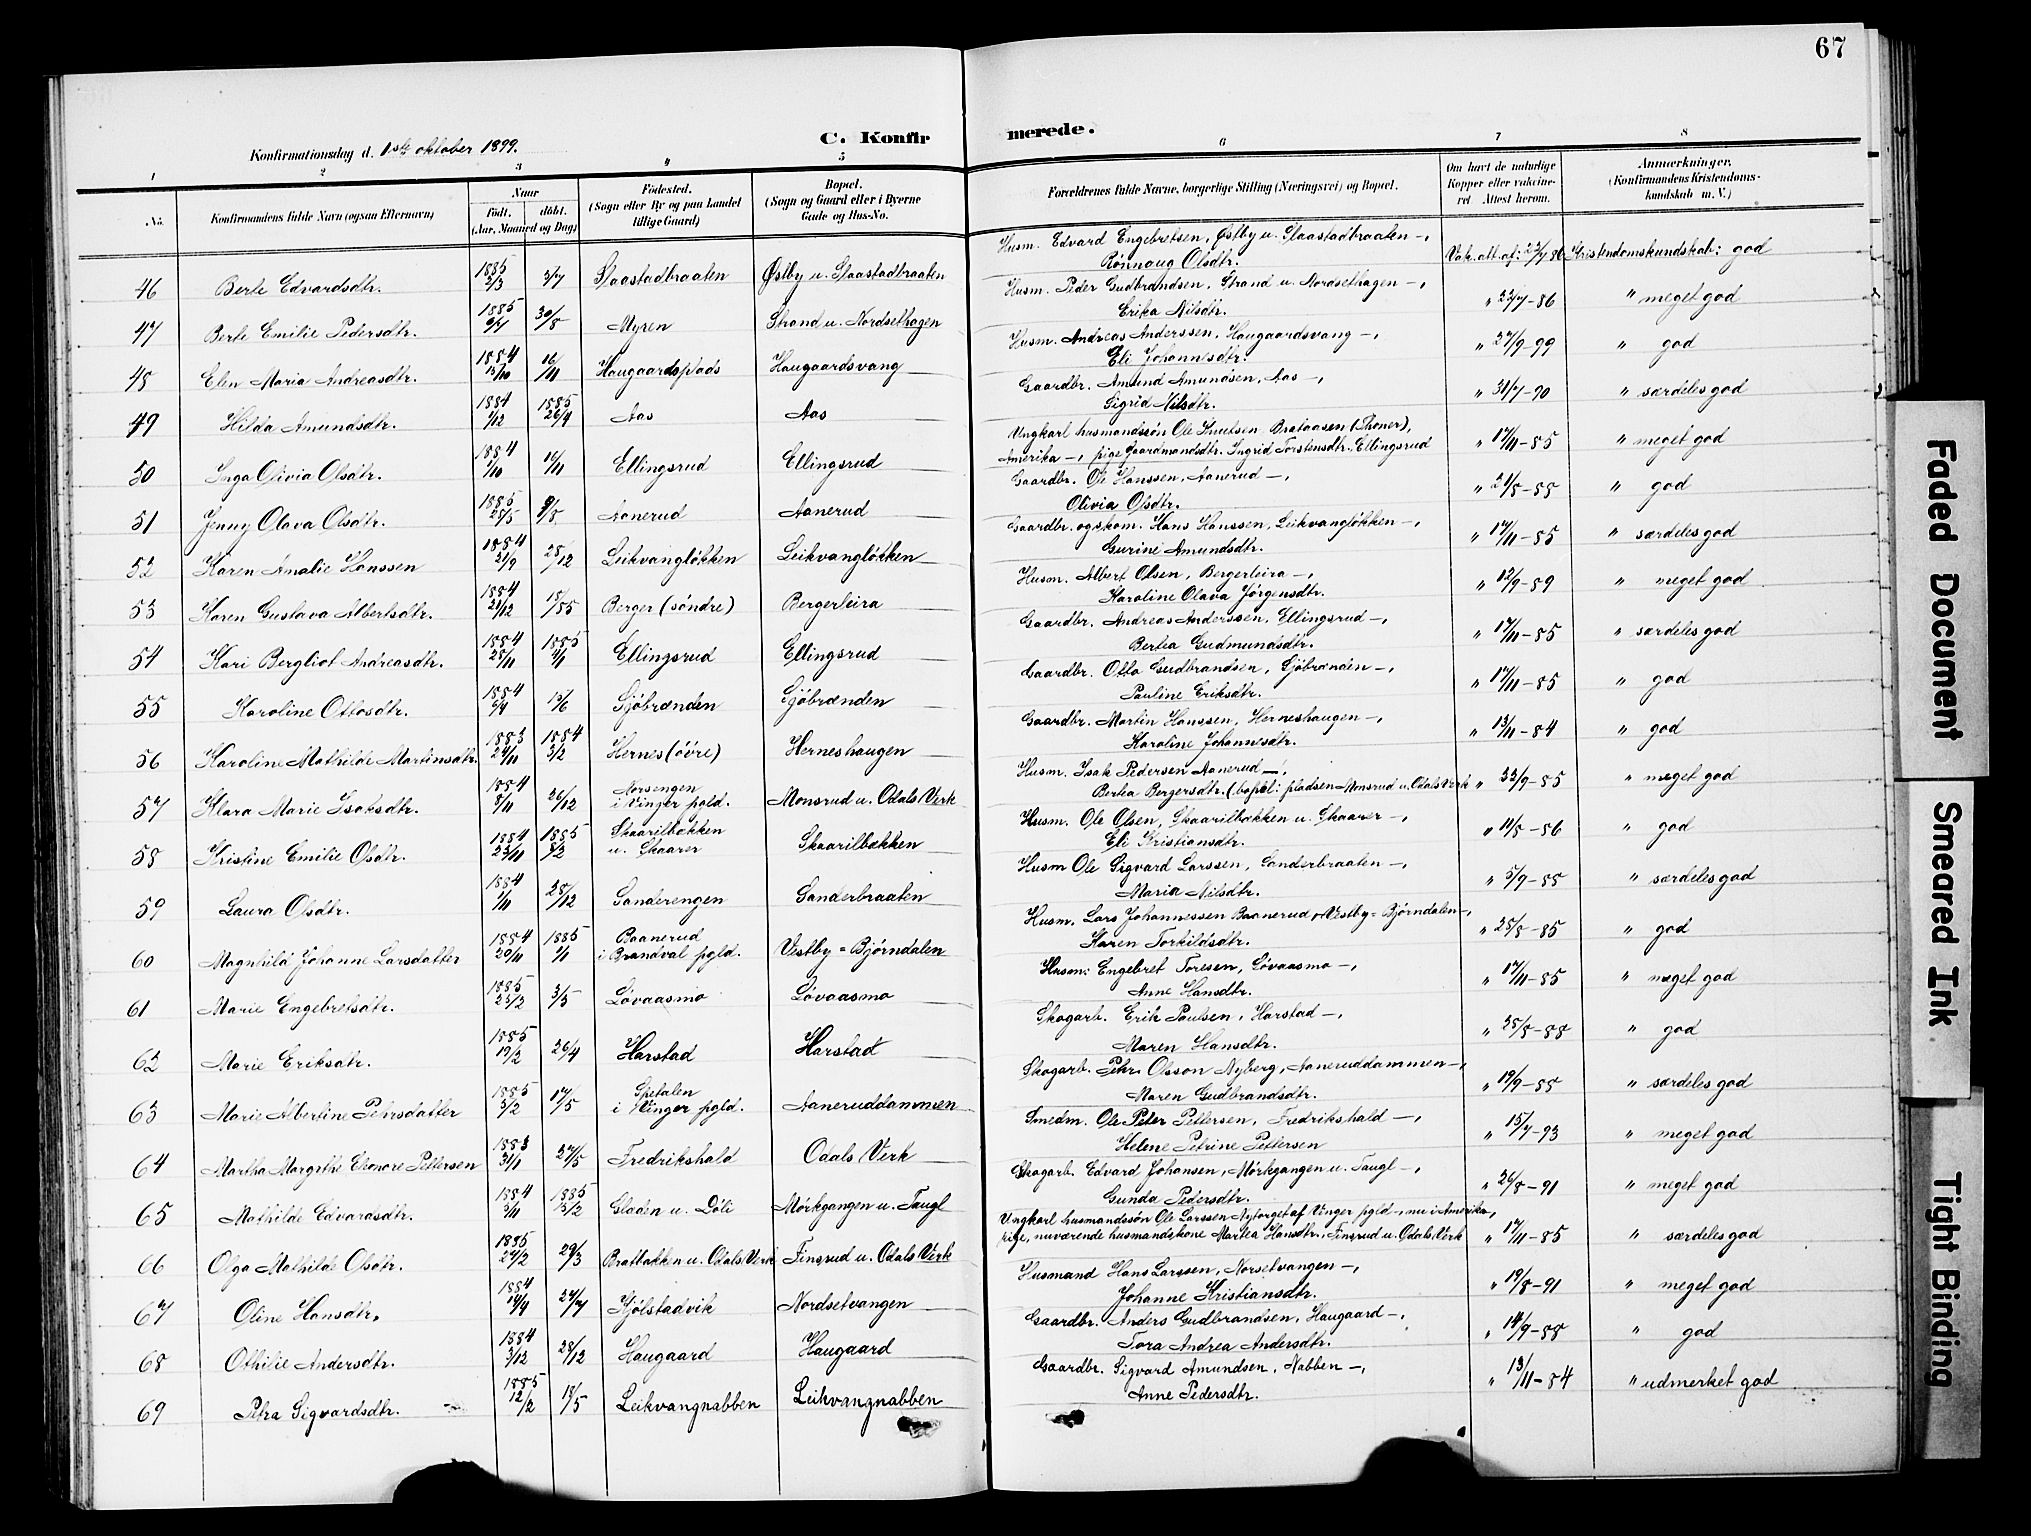 67
C. Konfir merede.
Konfirmationsdag d. 1ste oktober 1899.
1 2 3 4 5 6 7 8
No.
Konfirmandens fulde Navn (ogsaa Efternavn)
Naar
født. døbt.
(Aar, Maaned og Dag)
Fødested.
(Sogn eller By og paa Landet
tillige Gaard)
Bopæl.
(Sogn og Gaard eller i Byerne
Gade og Hus-No.
Forældrenes fulde Navne, borgerlige Stilling (Næringsvei) og Bopæl.
Om havt de naturlige
Kopper eller vakcine-
ret Attest herom.
Anmærkninger.
(Konfirmandens Kristendoms-
kundskab m. V.)
46 Berte Edvardsdtr. 1885 2/3 3/7 Slaastadbraaten Østby u. Slaastadbraaten Husm. Edvard Engebretsen, Østby u. Slaastadbraaten -,
Rønnaug Olsdtr. Vak. att. af: 23/7 86 Kristendomskundskab: god
47 Berte Emilie Pedersdtr. 1885 30/8 Myren Strand u. Nordsethagen Husm. Peder Gudbrandsen, Strand u. Nordsethagen -,
Erika Nilsdtr. " 23/7-86 " meget god
48 Elen Maria Andreasdtr. 1884 13/10 16/11 Haugaardsplads Haugaardsvang Husm. Andreas Anderssen, Haugaardsvang -,
Eli Johannesdtr. " 27/9-99 " god
49 Hilda Amundsdtr. 1884 1/12 1885 26/4 Aas Aas Gaardbr. Amund Amundsen, Aas -,
Sigrid Nilsdtr. " 31/7-90 " særdeles god
50 Inga Olivia Olsdtr. 1884 1/10 16/11 Ellingsrud Ellingsrud Ungkarl husmandssøn Ole Knutsen Brataasen (Thoner),
Amerika -, pige gaardmandsdtr. Ingrid Torstensdtr. Ellingsrud " 17/11-85 " meget god
51 Jenny Olava Olsdtr. 1885 25/5 9/8 Aanerud Aanerud Gaardbr. Ole Hanssen, Aanerud -,
Olivia Olsdtr. " 21/8-88 " god
52 Karen Amalie Hanssen 1884 21/9 28/12 Leikvangløkken Leikvangløkken Gaardbr. og skom. Hans Hanssen, Leikvangløkken -,
Gurine Amundsdtr. " 17/11-85 " særdeles god
53 Karen Gustava Albertsdtr. 1884 21/12 15/85 Berger (søndre) Bergerleira Husm. Albert Olsen, Bergerleira -,
Karoline Olava Jørgensdtr. " 12/9-89 " meget god
54 Kari Bergliot Andreasdtr. 1884 28/11 1885 4/1 Ellingsrud Ellingsrud Gaardbr. Andreas Anderssen, Ellingsrud -,
Bertea Gudmundsdtr. " 17/11-85 " særdeles god
55 Karoline Ottosdtr. 1884 6/4 15/6 Sjøbrænden Sjøbrænden Gaardbr. Otto Gudbrandsen, Sjøbrænden -,
Pauline Eriksdtr. " 17/11-85 " god
56 Karoline Mathilde Martinsdtr. 1883 24/11 1884 3/2 Hernes (øvre) Herneshaugen Gaardbr. Martin Hanssen, Herneshaugen -,
Karoline Johannesdtr. " 13/11-84 " god
57 Klara Marie Isaksdtr. 1884 8/11 26/12 Norsengen
i Vinger pgld. Monsrud u. Odals Verk Husm. Isak Pedersen Aanerud -,
Bertea Bergersdtr. (bopæl: pladsen Monsrud u. Odals Verk " 23/9-85 " meget god
58 Kristine Emilie Olsdtr. 1884 23/11 1885 8/2 Skaarilbækken
u. Skaarer Skaarilbækken Husm. Ole Olsen, Skaarilbækken u. Skaarer -,
Eli Kristiansdtr. " 11/8-86 " god
59 Laura Olsdtr. 1884 1/11 28/12 Sanderengen Sanderbraaten Husm Ole Sigvard Larssen, Sanderbraaten -,
Maria Nilsdtr. " 5/9-85 " særdeles god
60 Magnhild Johanne Larsdatter 1884 20/11 1885 1/1 Baanerud
i Brandval pgld. Vestby = Bjørndalen Husm. Lars Johannessen Baanerud, Vestby = Bjørndalen -,
Karen Torkildsdtr. " 25/8-85 " god
61 Marie Engebretsdtr. 1885 23/2 3/5 Løvaasmo Løvaasmo Husm. Engebret Toresen, Løvaasmo -,
Anne Hansdtr. " 17/11-85 " meget god
62 Marie Eriksdtr. 1885 19/2 26/4 Harstad Harstad Skogarb. Erik Paulsen, Harstad -,
Maren Hansdtr. " 25/8-88 " god
63 Marie Albertine Pehrsdatter 1885 3/2 17/5 Spetalen
i Vinger pgld. Aaneruddammen Skogarb. Pehr Olsson Nyberg, Aaneruddammen -,
Maren Gudbrandsdtr. " 19/9-88 " særdeles god
64 Martha Margrethe Eleonore Pettersen 1883 31/1 27/5 Fredrikshald Odals Verk Smedm. Ole Peter Pettersen, Fredrikshald -,
Helene Petrine Pettersen " 15/7-93 " meget god
65 Mathilde Edvardsdtr. 1884 3/11 1885 15/2 Sladen u. Døli Mørkgangen u. Taugl Skogarb. Edvard Johansen, Mørkgangen u. Taugl -,
Gunda Pedersdtr. " 26/8-91 " meget god
66 Olga Mathilde Olsdtr. 1885 24/2 29/3 Bratbakken u. Odals Verk Finsrud u. Odals Verk Ungkarl husmandssøn Ole Larssen Nytorget af Vinger pgld -, nu i Amerika,
pige, nuværende husmandskone Martea Hansdtr., Finsrud u. Odals Verk " 17/11-85 " særdeles god
67 Oline Hansdtr. 1884 14/4 27/7 Kjølstadvik Nordsetvangen Husmand Hans Larssen, Norsetvangen -,
Johanne Kristiansdtr. " 19/8-91 " meget god
68 Othilie Andersdtr. 1884 3/12 28/12 Haugaard Haugaard Gaardbr. Anders Gudbrandsen, Haugaard -,
Tora Andrea Andersdtr. " 14/9-88 " god
69 Petra Sigvardsdtr. 1885 12/2 18/5 Leikvangnabben Leikvangnabben Gaardbr. Sigvard Amundsen, Nabben -,
Anne Pedersdtr. " 13/11-84 " udmerket god
Faded Document
Smeared Ink
Tight Binding